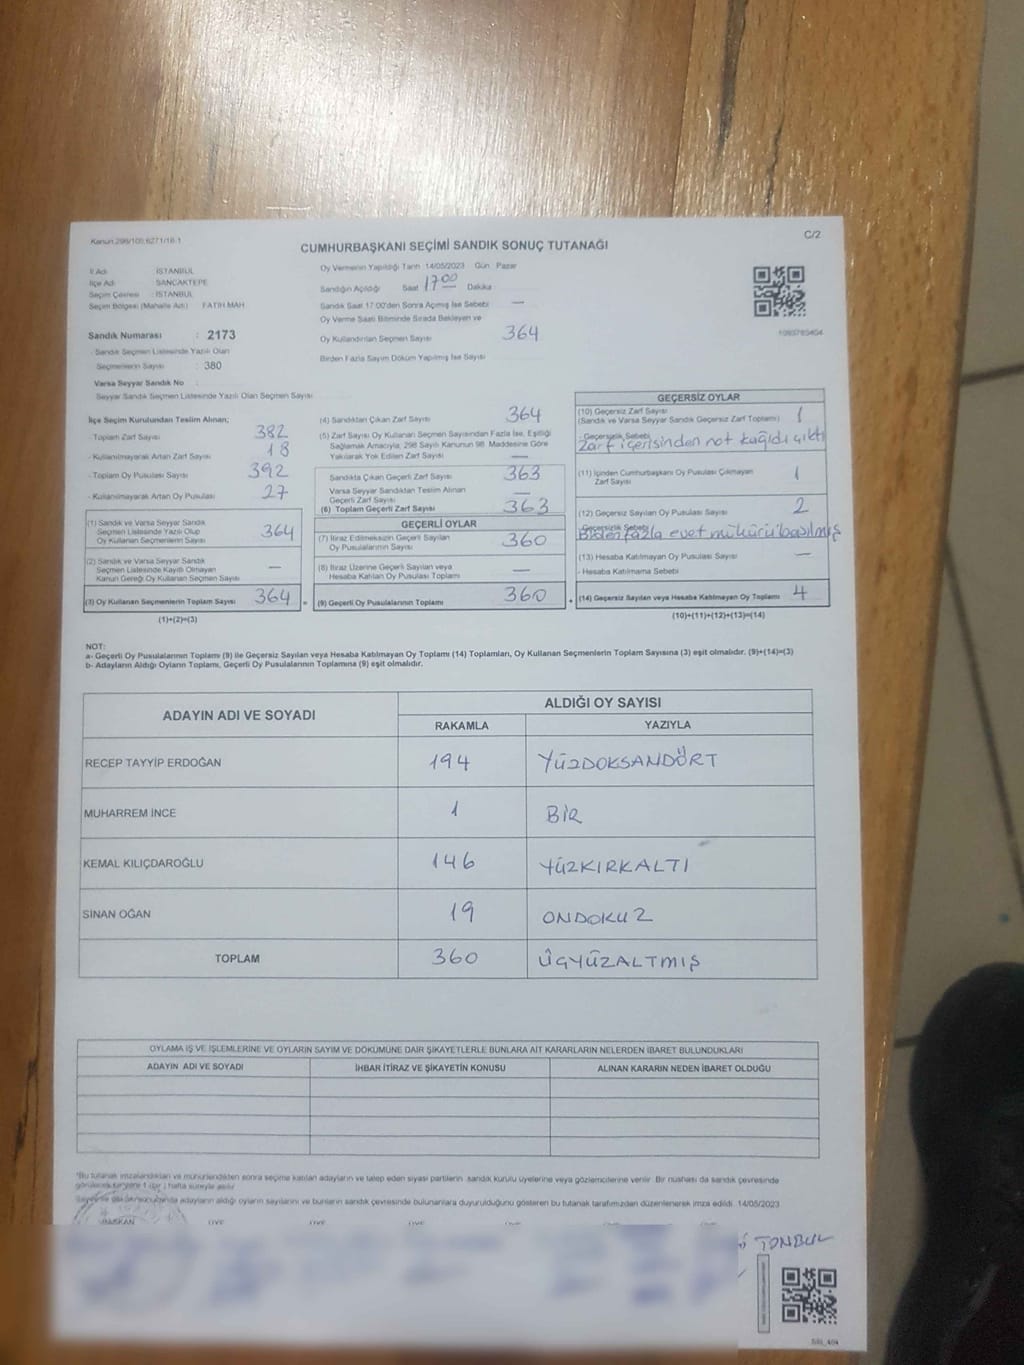 Kanun:298/105;6271/18-1
C/2
CUMHURBAŞKANI SEÇİMİ SANDIK SONUÇ TUTANAĞI
İl Adı : İSTANBUL
İlçe Adı : SANCAKTEPE
Seçim Çevresi : İSTANBUL
Seçim Bölgesi (Mahalle Adı) : FATİH MAH
Sandık Numarası : 2173
Sandık Seçmen Listesinde Yazılı Olan
Seçmenlerin Sayısı : 380
Varsa Seyyar Sandık No :
Seyyar Sandık Seçmen Listesinde Yazılı Olan Seçmen Sayısı
Oy Vermenin Yapıldığı Tarih :14/05/2023 Gün : Pazar
Sandığın Açıldığı Saat 17 00 Dakika
Sandık Saat 17:00'den Sonra Açılmış İse Sebebi —
Oy Verme Saati Bitiminde Sırada Bekleyen ve
Oy Kullandırılan Seçmen Sayısı 364
Birden Fazla Sayım Döküm Yapılmış İse Sayısı
İlçe Seçim Kurulundan Teslim Alınan;
- Toplam Zarf Sayısı 382
- Kullanılmayarak Artan Zarf Sayısı 18
- Toplam Oy Pusulası Sayısı 392
- Kullanılmayarak Artan Oy Pusulası 27
(1) Sandık ve Varsa Seyyar Sandık
Seçmen Listesinde Yazılı Olup
Oy Kullanan Seçmenlerin Sayısı 364
(2) Sandık ve Varsa Seyyar Sandık
Seçmen Listesinde Kayıtlı Olmayan
Kanun Gereği Oy Kullanan Seçmen Sayısı —
(3) Oy Kullanan Seçmenlerin Toplam Sayısı 364
(1)+(2)=(3)
(4) Sandıktan Çıkan Zarf Sayısı 364
(5) Zarf Sayısı Oy Kullanan Seçmen Sayısından Fazla İse, Eşitliği
Sağlamak Amacıyla; 298 Sayılı Kanunun 98. Maddesine Göre
Yakılarak Yok Edilen Zarf Sayısı —
Sandıkta Çıkan Geçerli Zarf Sayısı 363
Varsa Seyyar Sandıktan Teslim Alınan
Geçerli Zarf Sayısı —
(6) Toplam Geçerli Zarf Sayısı 363
GEÇERLİ OYLAR
(7) İtiraz Edilmeksizin Geçerli Sayılan
Oy Pusulalarının Sayısı 360
(8) İtiraz Üzerine Geçerli Sayılan veya
Hesaba Katılan Oy Pusulası Toplamı —
= (9) Geçerli Oy Pusulalarının Toplamı 360
GEÇERSİZ OYLAR
(10) Geçersiz Zarf Sayısı
(Sandık ve Varsa Seyyar Sandık Geçersiz Zarf Toplamı) 1
- Geçersizlik Sebebi
Zarf içerisinden not kağıdı çıktı
(11) İçinden Cumhurbaşkanı Oy Pusulası Çıkmayan
Zarf Sayısı 1
(12) Geçersiz Sayılan Oy Pusulası Sayısı 2
- Geçersizlik Sebebi
Birden fazla evet mühürü basılmış
(13) Hesaba Katılmayan Oy Pusulası Sayısı —
- Hesaba Katılmama Sebebi
+ (14) Geçersiz Sayılan veya Hesaba Katılmayan Oy Toplamı 4
(10)+(11)+(12)+(13)=(14)
NOT:
a- Geçerli Oy Pusulalarının Toplamı (9) ile Geçersiz Sayılan veya Hesaba Katılmayan Oy Toplamı (14) Toplamları, Oy Kullanan Seçmenlerin Toplam Sayısına (3) eşit olmalıdır. (9)+(14)=(3)
b- Adayların Aldığı Oyların Toplamı, Geçerli Oy Pusulalarının Toplamına (9) eşit olmalıdır.
ADAYIN ADI VE SOYADI
ALDIĞI OY SAYISI
RAKAMLA YAZIYLA
RECEP TAYYİP ERDOĞAN 194 YÜZDOKSANDÖRT
MUHARREM İNCE 1 BİR
KEMAL KILIÇDAROĞLU 146 YÜZKIRKALTI
SİNAN OĞAN 19 ONDOKUZ
TOPLAM 360 ÜÇYÜZALTMIŞ
OYLAMA İŞ VE İŞLEMLERİNE VE OYLARIN SAYIM VE DÖKÜMÜNE DAİR ŞİKAYETLERLE BUNLARA AİT KARARLARIN NELERDEN İBARET BULUNDUKLARI
ADAYIN ADI VE SOYADI İHBAR İTİRAZ VE ŞİKAYETİN KONUSU ALINAN KARARIN NEDEN İBARET OLDUĞU
*Bu tutanak imzalandıktan ve mühürlendikten sonra seçime katılan adayların ve talep eden siyasi partilerin sandık kurulu üyelerine veya gözlemcilerine verilir. Bir nüshası da sandık çevresinde
aldığı oyların sayılarını ve bunların sandık çevresinde bulunanlara duyurulduğunu gösteren bu tutanak tarafımızdan düzenlenerek imza edildi. 14/05/2023
BAŞKAN ÜYE ÜYE ÜYE